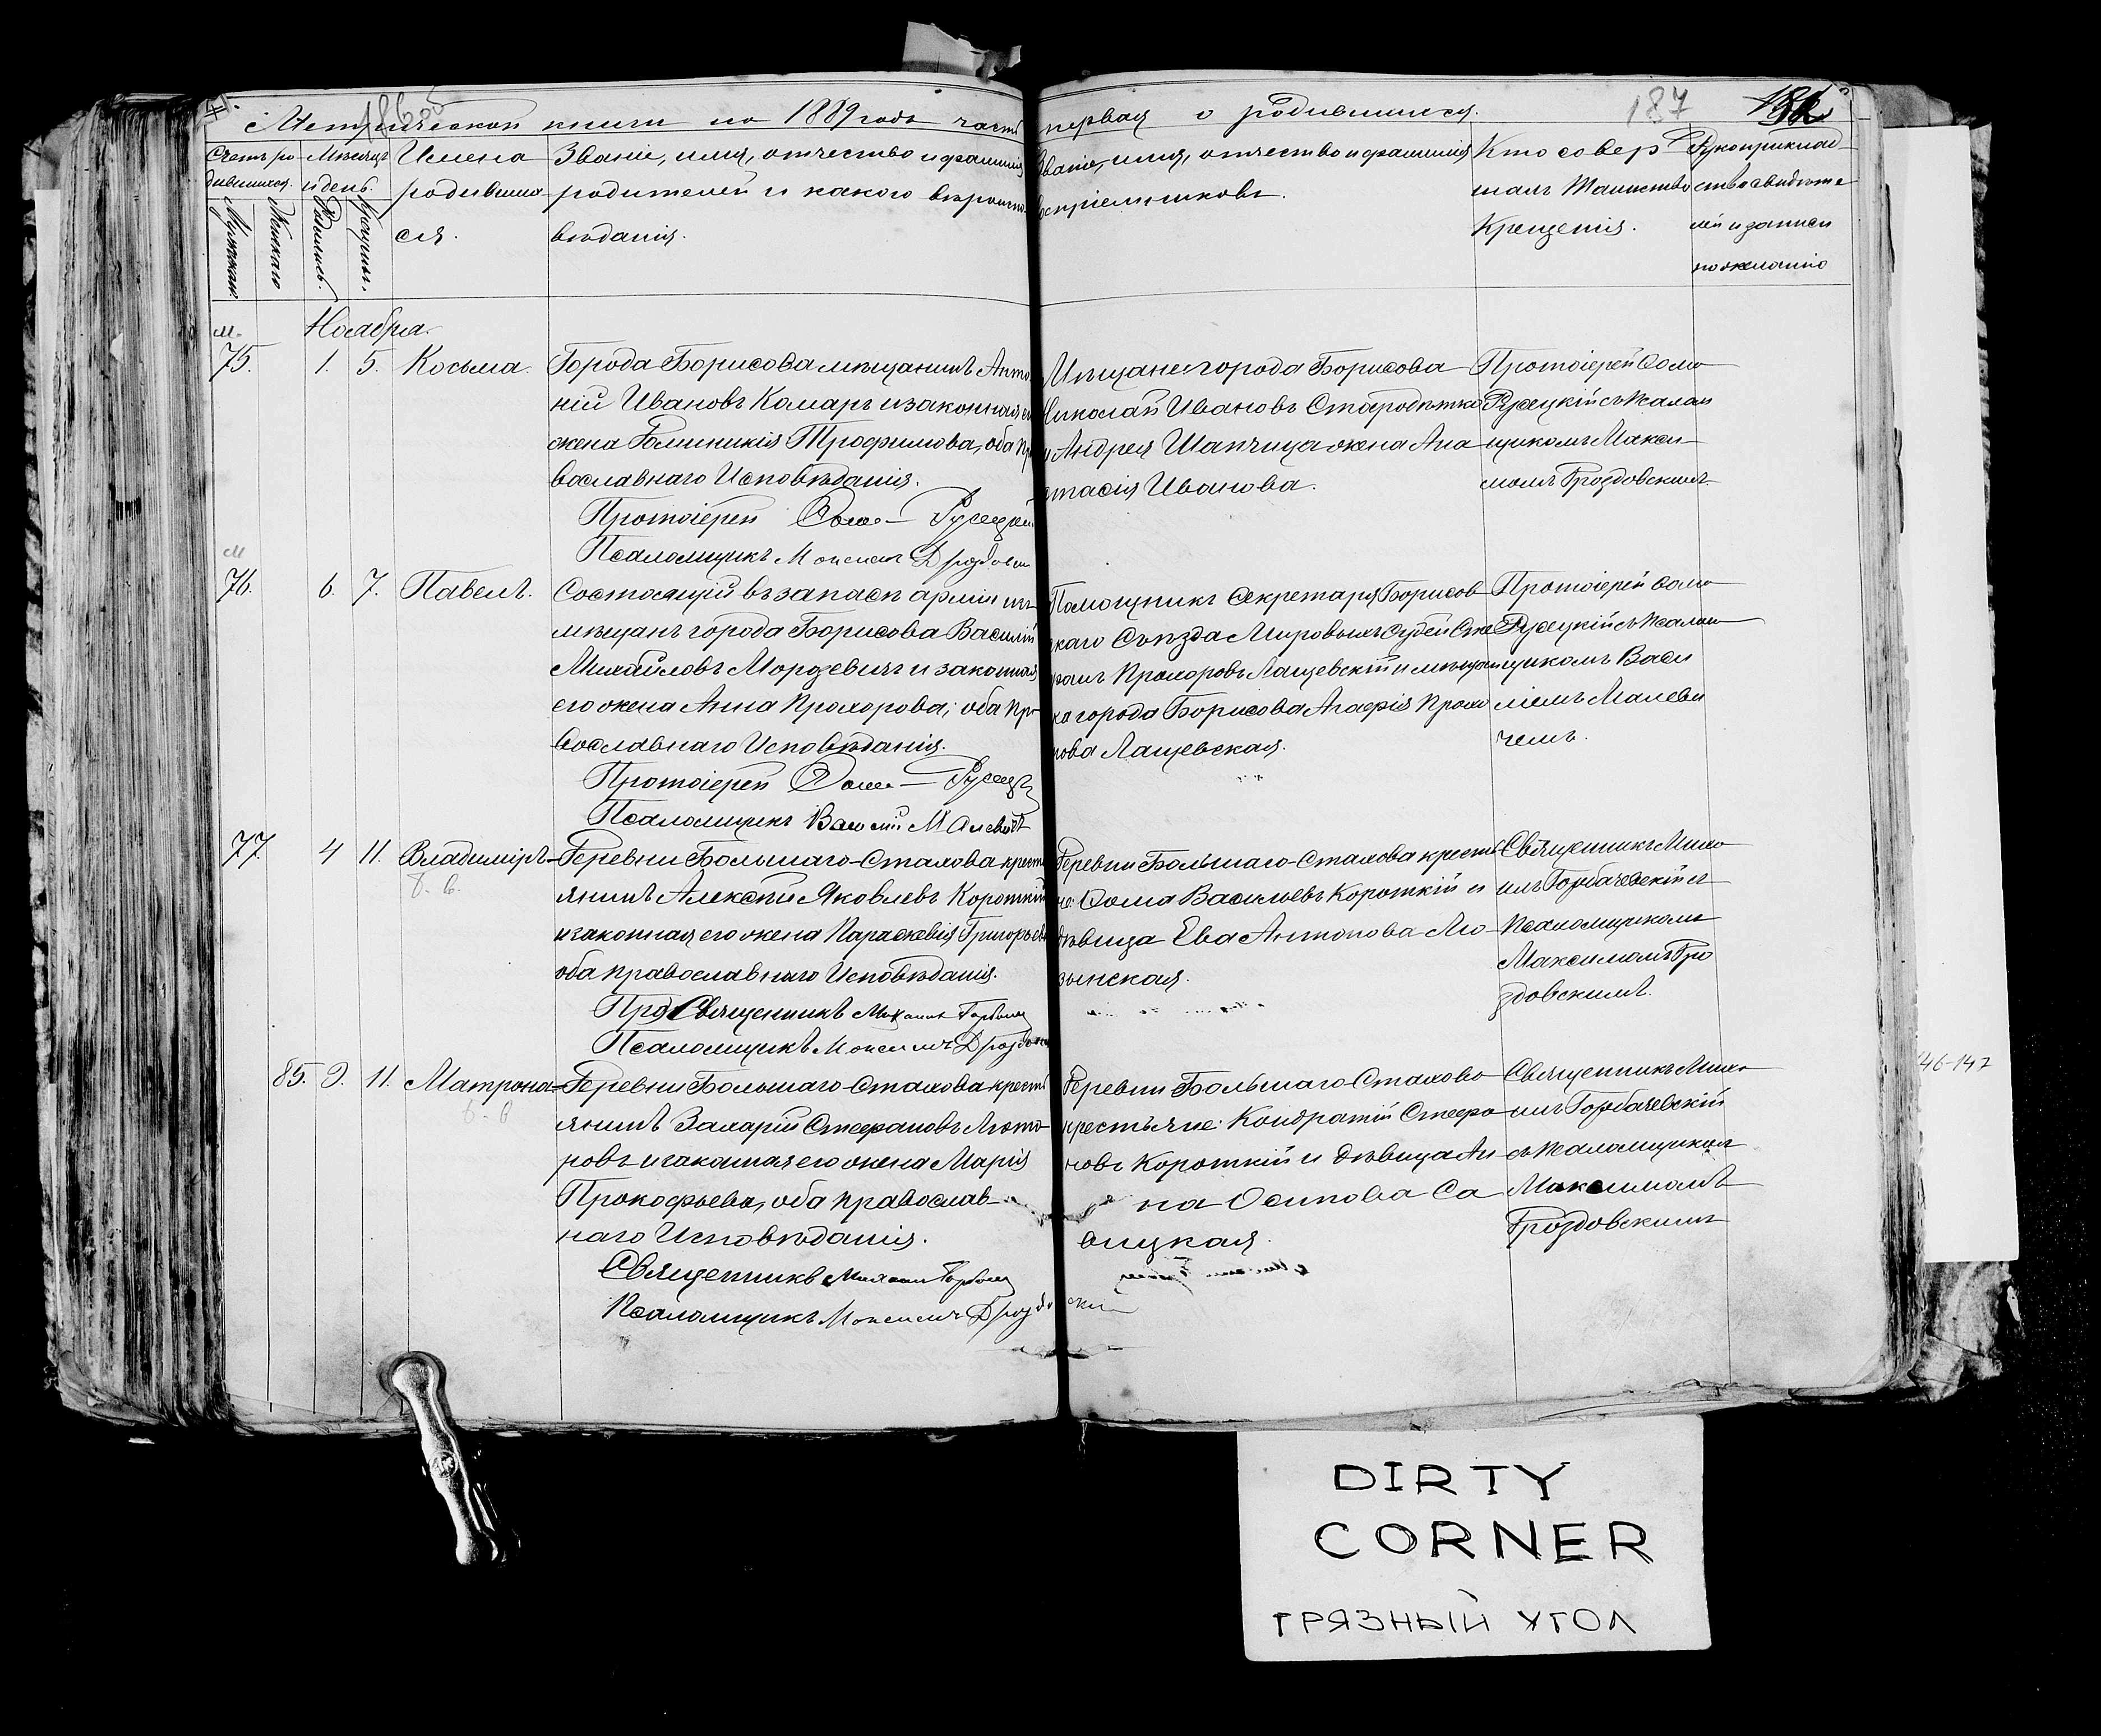 Метрической книги на 1889 годъ часть первая о родившихся.
187
Счетъ ро-
дившихся.
Мужскаго
Женскаго
Мѣсяцъ
и день.
Родились.
Крещены.
Имена
родивших
ся.
Званіе, имя, отчество и фамилія
родителей и какого вѣроиспо-
вѣданія.
Званіе, имя, отчество и фамилія
воспріемниковъ.
Кто совер
шалъ Таинство
Крещенія.
Рукоприклад
ство свидѣте
лей и записи
по желанію
Ноября.
м.
75. 1. 5. Косьма.
Города Борисова мѣщанинъ Анто
ній Ивановъ Комаръ и законная его
жена Гликикія Трофимова, оба пра
вославнаго Исповѣданія.
Протоіерей Ѳома Русецкій
Псаломщикъ Максимъ Дроздовскій
Мѣщане города Борисова
Николай Ивановъ Стародѣтко
и Андрея Шапчица жена Ана
стасія Иванова.
Протоіерей Ѳома
Русецкій съ Псалом
щикомъ Макси
момъ Дроздовскимъ
м
76. 6. 7. Павелъ.
Состоящій въ запасѣ арміи изъ
мѣщанъ города Борисова Василій
Михайловъ Мордзевичъ и законная
его жена Анна Прохорова, оба пра
вославнаго Исповѣданія.
Протоіерей Ѳома Русецкій
Псаломщикъ Василій Малевичъ
Помощникъ Секретаря Борисов
скаго Съѣзда Мировыхъ Судей
Прохоровъ Лащевскій и мѣщан
ка города Борисова Агафія Прохо
рова Лащевская.
Протоіерей Ѳома
Русецкій съ Псалом
щикомъ Васи
ліемъ Малеви
чемъ.
77 4 11. Владиміръ
Деревни Большаго-Стахова кресть
янинъ Алексѣй Яковлевъ Короткій
и законная его жена Параскевія Григорьева
оба православнаго Исповѣданія.
Священникъ Михаилъ Горбачевскій
Псаломщикъ Максимъ Дроздовскій
Деревни Большаго-Стахова крестья
не: Ѳома Васильевъ Короткій и
дѣвица Ева Антонова Лю
зынская.
Священникъ Миха
илъ Горбачевскій съ
Псаломщикомъ
Максимомъ Дро
здовскимъ.
85. 9. 11. Матрона
Деревни Большаго-Стахова кресть
янинъ Захарій Стефановъ Люто-
ровъ и законная его жена Марія
Прокофьева, оба православ-
наго Исповѣданія.
Священникъ Михаилъ Горбачевскій
Псаломщикъ Максимъ Дроздовскій
Деревни Большаго-Стахова
крестьяне: Кондратій Стефа
новъ Короткій и дѣвица Ан
на Осипова Са
вицкая.
Священникъ Миха
илъ Горбачевскій
съ Псаломщикомъ
Максимомъ
Дроздовскимъ
146-147
DIRTY
CORNER
ГРЯЗНЫЙ УГОЛ